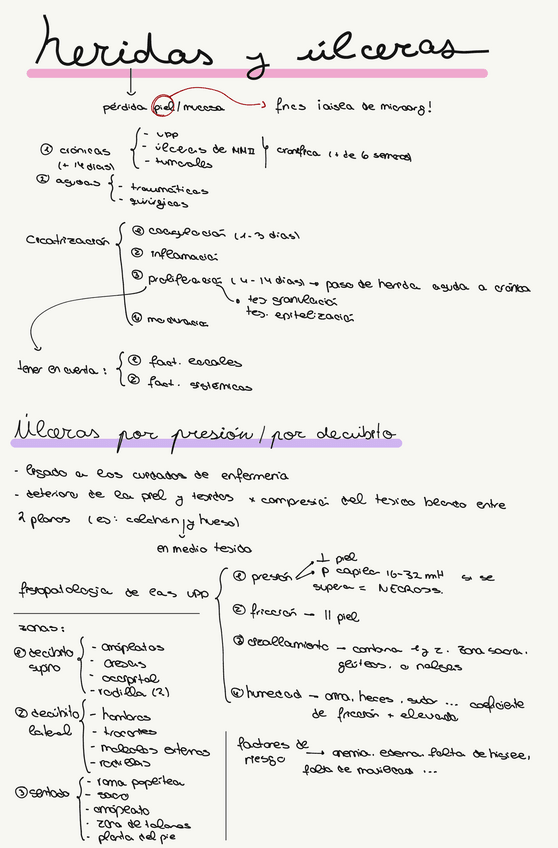 heridas y úlceras
pérdida piel/mucosa → fncs ¡aisla de microorg!
① crónicas (+ 14 días)
- UPP
- úlceras de MMII
- tumorales
cronifica (+ de 6 semanas)
② agudas
- traumáticas
- quirúrgicas
Cicatrización
① coagulación (1-3 días)
② inflamación
③ proliferación (4-14 días) → paso de herida aguda a crónica
• tej granulación
tej. epitelización
④ maduración
tener en cuenta:
① fact. locales
② fact. sistémicos
Úlceras por presión / por decúbito
- ligado a los cuidados de enfermería
- deterioro de la piel y tejidos x compresión del tejido blando entre
2 planos (ej: colchón y hueso)
en medio tejido
fisiopatología de las UPP
① presión
⊥ piel
P capilar 16-32 mmH si se
supera = NECROSIS.
② fricción → || piel
③ cizallamiento → combina 1 y 2. zona sacra.
glúteos. o nalgas
④ humedad → orina, heces, sudor ... coeficiente
de fricción + elevada
zonas:
① decúbito supino
- omóplatos
- crestas
- occipital
- rodilla (2)
② decúbito lateral
- hombros
- trocantes
- maleolos externos
- rodillas
③ sentado
- rama poplítea
- sacro
- omóplato
- zona de talones
- planta del pie
factores de riesgo → anemia. edema. falta de higiene,
falta de movilidad ...